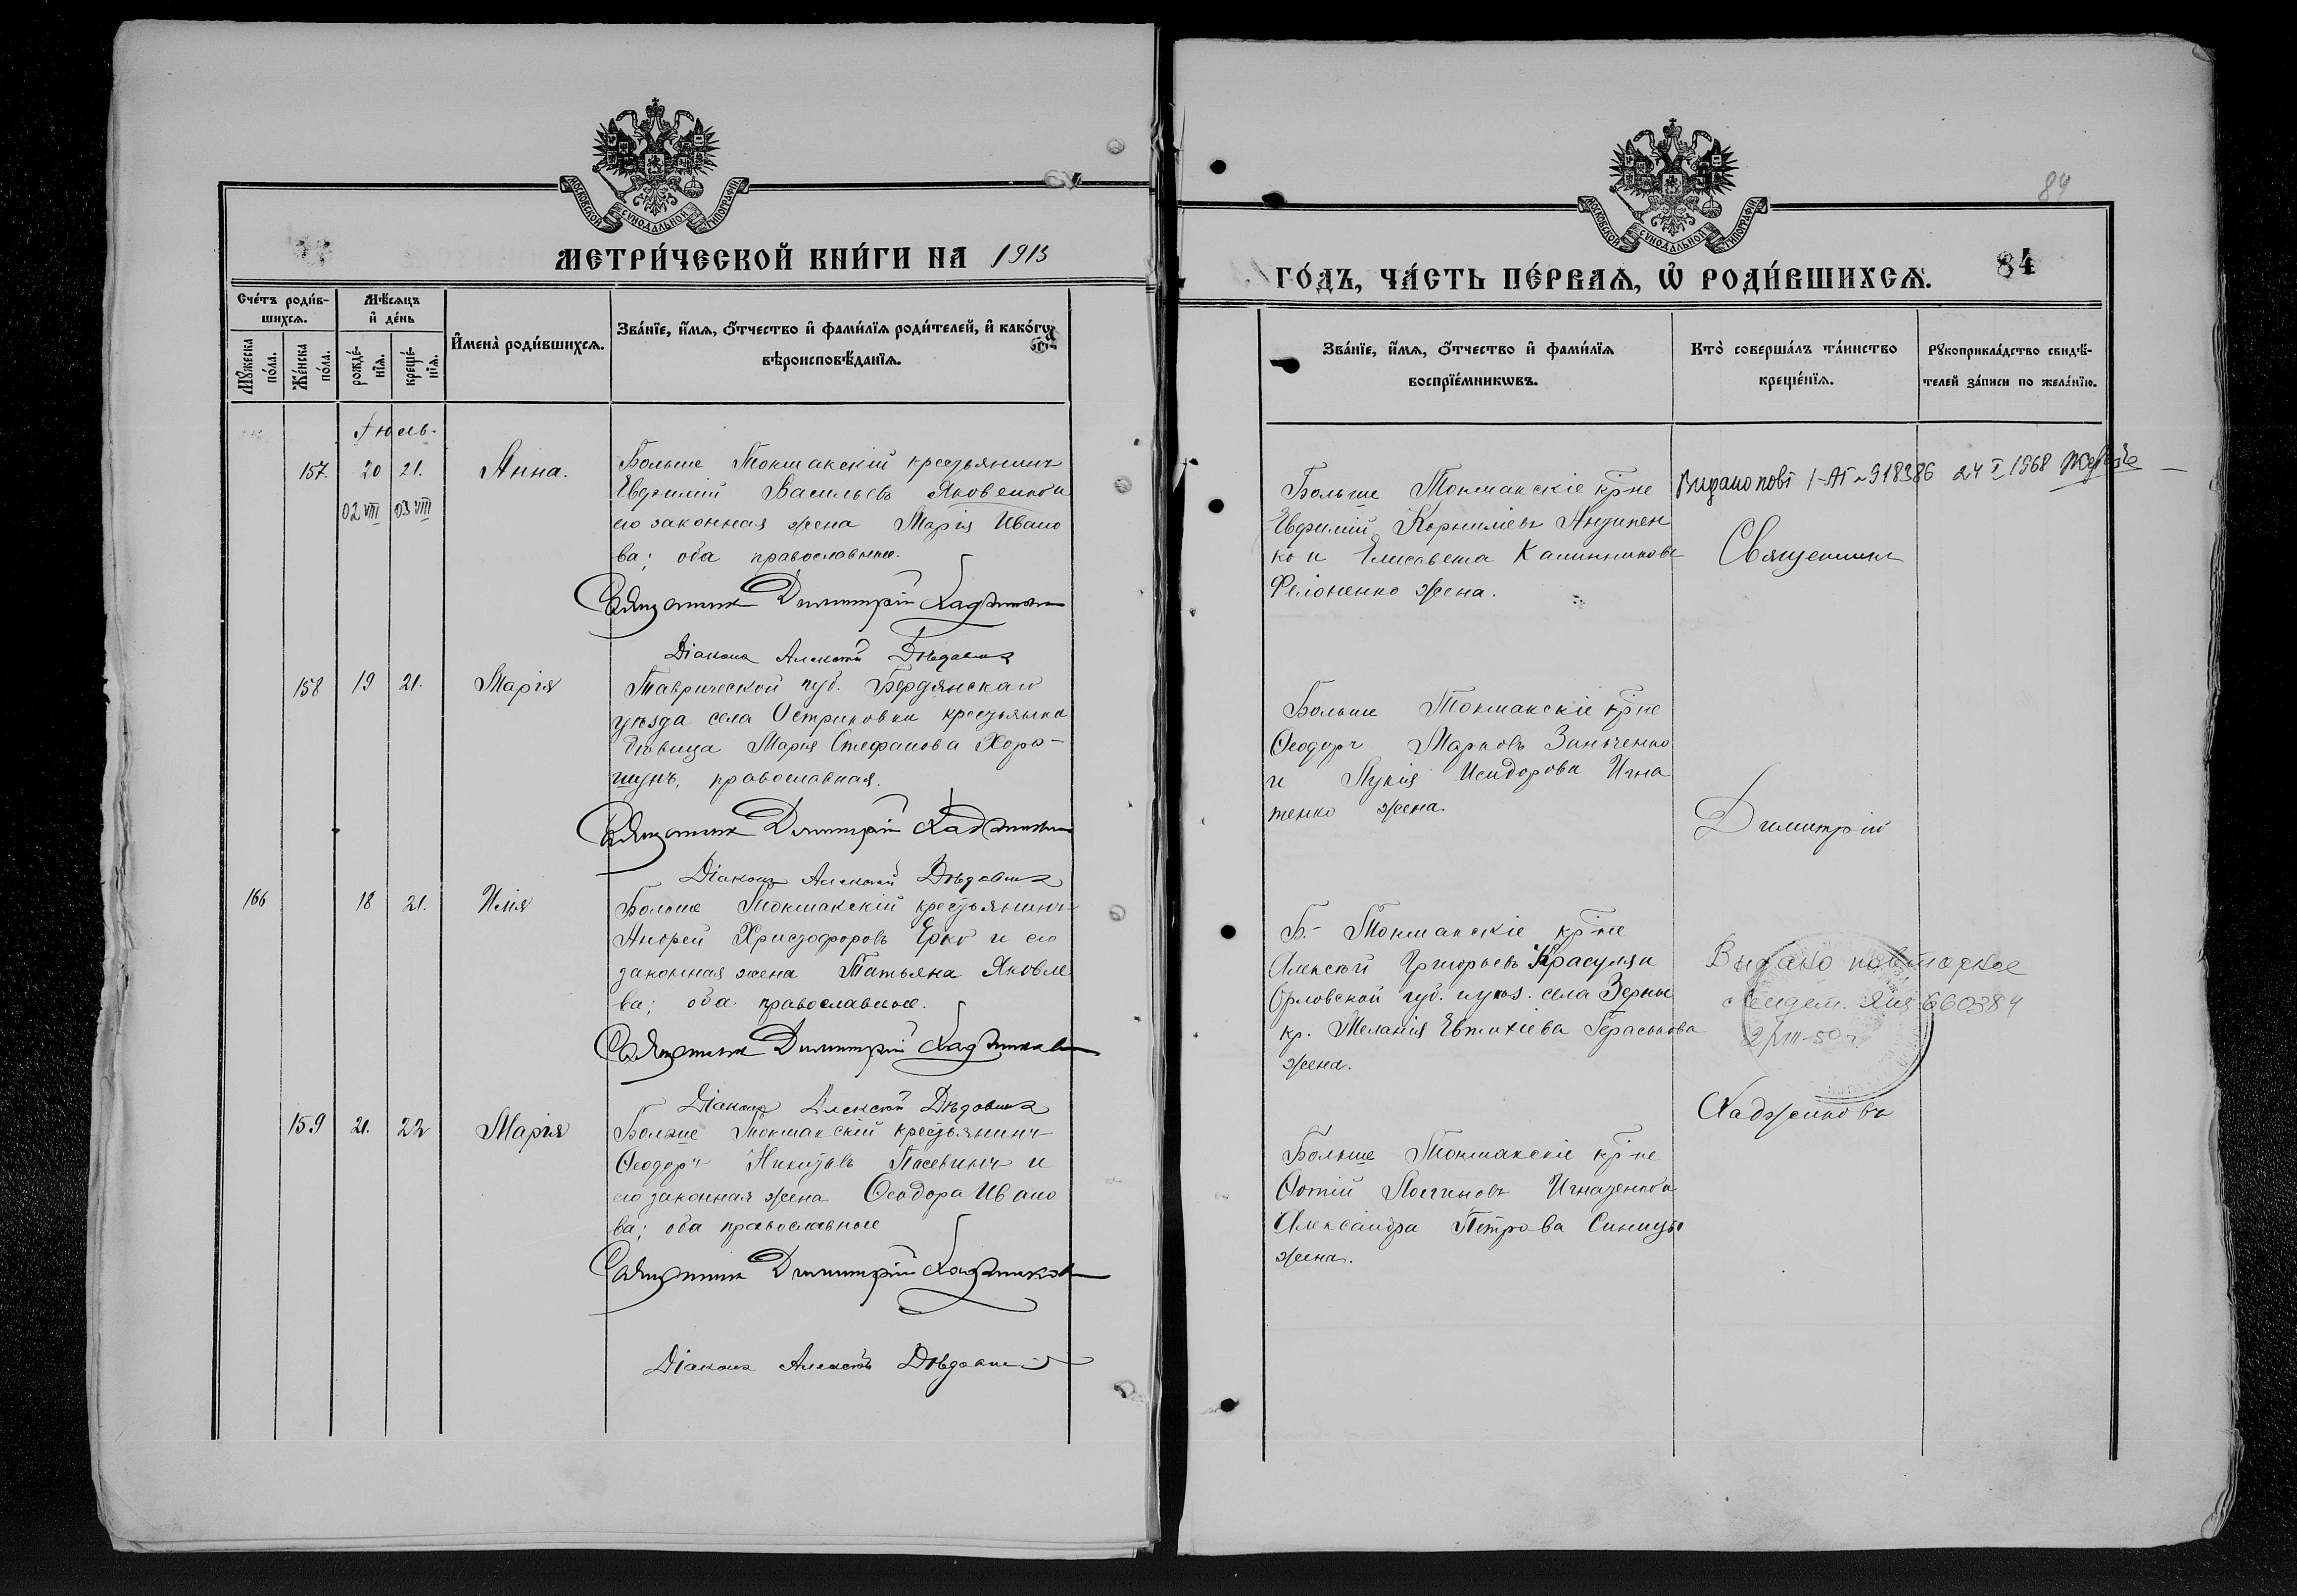 МОСКОВСКОЙ СУНОДАЛЬНОЙ ТИПОГРАФІИ
МЕТРИ́ЧЕСКОЙ КНИ́ГИ НА 1913
Сче́тъ роди́в-
шихсѧ.
Мѣ́сѧцъ
и҆ де́нь
И҆мена̀ роди́вшихсѧ.
Зва́нїе, и҆́мѧ, ѻ҆́тчество и҆ фами́лїѧ роди́телей, и҆ како́гѡ
вѣроисповѣ́данїѧ.
Мꙋ́жеска
по́ла.
Же́нска
по́ла.
рожде́-
нїѧ.
креще́-
нїѧ.
Іюль.
157. 20 21. Анна.
02 VIII 03 VIII
Больше Токмакскій крестьянинъ
Евфимій Васильевъ Яковенко и
его законная жена Марія Ивано
ва; оба православные.
Священникъ Димитрій Хаджиновъ
Діаконъ Алексѣй
158 19 21. Марія
Таврической губ. Бердянскаго
уѣзда села Остриковки крестьянка
дѣвица Марія Стефанова Хоро-
шунъ, православная.
Священникъ Димитрій Хаджиновъ
Діаконъ Алексѣй
166 18 21. Илія
Больше Токмакскій крестьянинъ
Андрей Христофоровъ Ерко и его
законная жена Татьяна Яковле
ва; оба православные.
Священникъ Димитрій Хаджиновъ
Діаконъ Алексѣй
159 21. 22 Марія
Больше Токмакскій крестьянинъ
Ѳеодоръ и
его законная жена Ѳеодора Ивано
ва; оба православные
Священникъ Димитрій Хаджиновъ
Діаконъ Алексѣй
84
МОСКОВСКОЙ СУНОДАЛЬНОЙ ТИПОГРАФІИ
ГО́ДЪ, ЧА́СТЬ ПЕ́РВАѦ, Ѡ҆ РОДИ́ВШИХСѦ.
84
Зва́нїе, и҆́мѧ, ѻ҆́тчество и҆ фами́лїѧ
воспрїе́мникѡвъ.
Кто̀ соверша́лъ та́инство
креще́нїѧ.
Рꙋкоприкла́дство свидѣ́-
телей за́писи по жела́нїю.
Больше Токмакскіе кр-не
Евфимій Корниліевъ Антипен
ко и Елисавета Калинникова
Филоненко жена.
Видано повт І-АП № 918386 24 I 1968
Священникъ
Больше Токмакскіе кр-не
Ѳеодоръ Марковъ Зинченко
и Лукія Исидорова Игна
тенко жена.
Димитрій
Б.- Токмакскіе кр-не
Алексѣй Григорьевъ Красуля и
Орловской губ. села
кр. Меланія Евтихіева Гераськова
жена.
Видано повторное
660384
Хаджиновъ
Больше Токмакскіе кр-не
Фотій Игнатенко и
Александра Петрова Синица
жена.